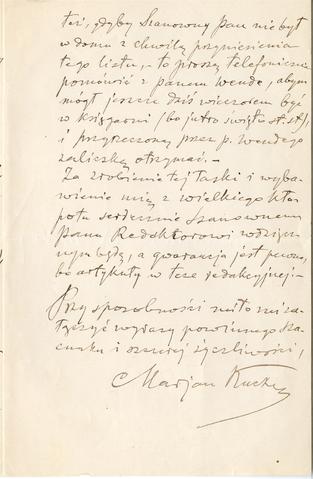 też, gdyby Szanowny Pan nie był
w domu z chwilą przyniesienia
tego listu, – to proszę telefonicznie
pomówić z panem Wende, abym
mógł jeszcze dziś wieczorem być
w księgarni (bo jutro święto st. st.),
i przyrzeczoną przez p. Wendego
zaliczkę otrzymać. –
Za zrobienie tej łaski i wyba-
wienie mię z wielkiego kło-
potu serdecznie Szanownemu
Panu Redaktorowi wdzięcz-
nym będę, a gwarancja jest pewna,
bo artykuły w tece redakcyjnej –
Przy sposobności miło mi za-
łączyć wyrazy powinnego sza-
cunku i szczerej życzliwości,
Marjan